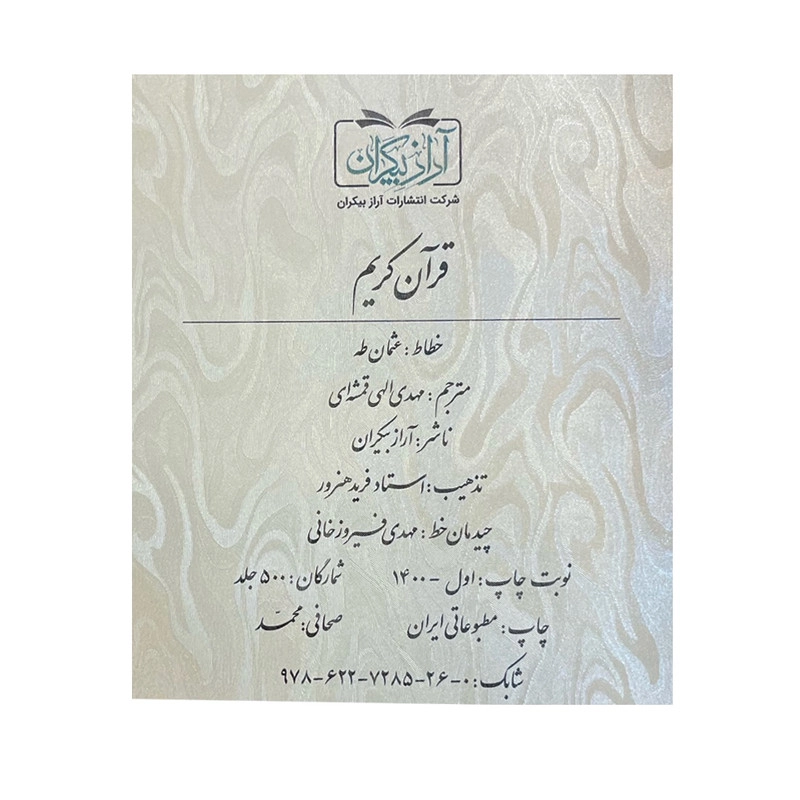 آراز بیکران
شرکت انتشارات آراز بیکران
قرآن کریم
خطاط : عثمان طه
مترجم : مهدی الهی قمشه‌ای
ناشر : آراز بیکران
تذهیب : استاد فرید هنرور
چیدمان خط : مهدی فیروزخانی
نوبت چاپ : اول - ۱۴۰۰ شمارگان : ۵۰۰ جلد
چاپ : مطبوعاتی ایران صحافی : محمّد
شابک : ۰-۲۶-۷۲۸۵-۶۲۲-۹۷۸